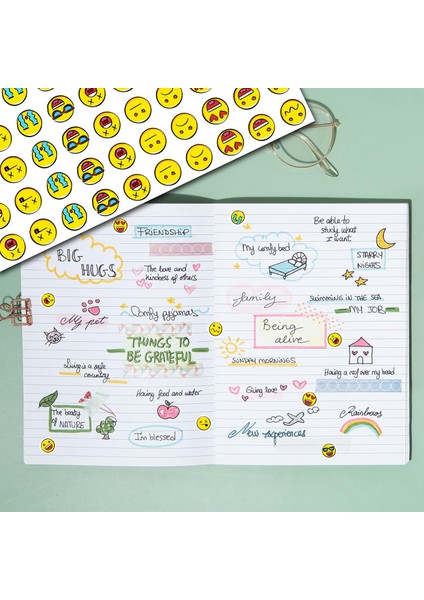 FRIENDSHIP
BIG
HUGS
The love and
kindness of others
My pet
Comfy pyjamas
THINGS TO
BE GRATEFUL
Living is a safe
country
Having food and water
The beauty
of NATURE
I'm blessed
Be able to
study what
I want
My comfy bed
STARRY
NIGTS
family
SWIMMING IN THE SEA
MY JOB
Being
alive
SUNDAY MORNINGS
Having a roof over my head
Giving love
Rainbows
New experiences